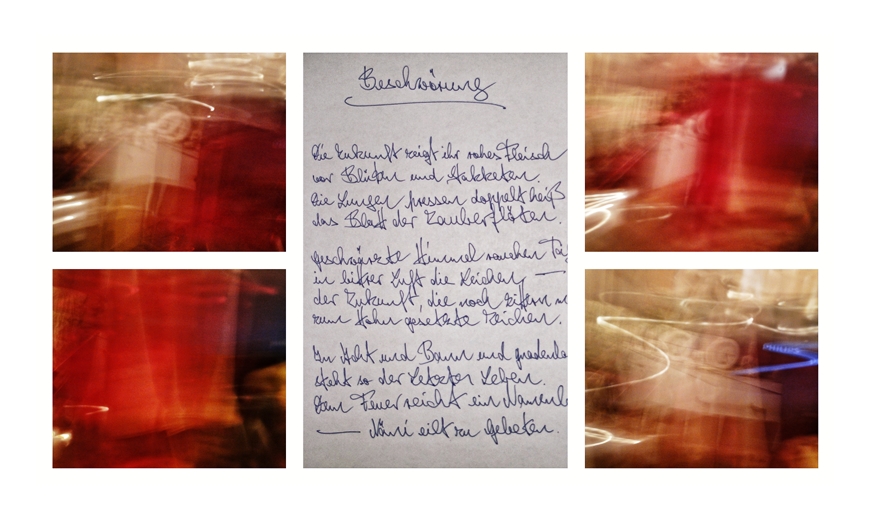 Beschwörung
Die Zukunft zeigt ihr rohes Fleisch
vor Blüten und Staketen.
Die Lungen pressen doppelt heiß
das Blatt der Zauberflöten.
geschwärzte Himmel rauchen
in bittrer Luft die Leichen —
der Zukunft, die noch zittern
zum Hohn gesetzte Zeichen.
In Acht und Bann und
steht so der Letzten Leben.
Dem Feuer reicht ein
— eilt zu Gebeten.